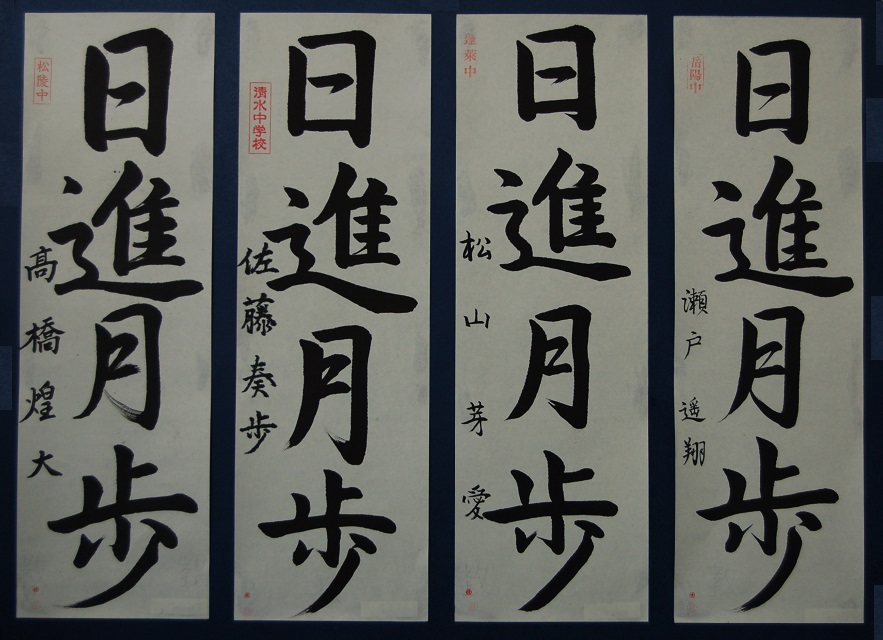 日進月歩
松陵中
髙橋煌大
日進月歩
清水中学校
佐藤奏歩
日進月歩
蓬莱中
松山芽愛
日進月歩
岳陽中
瀬戸遥翔